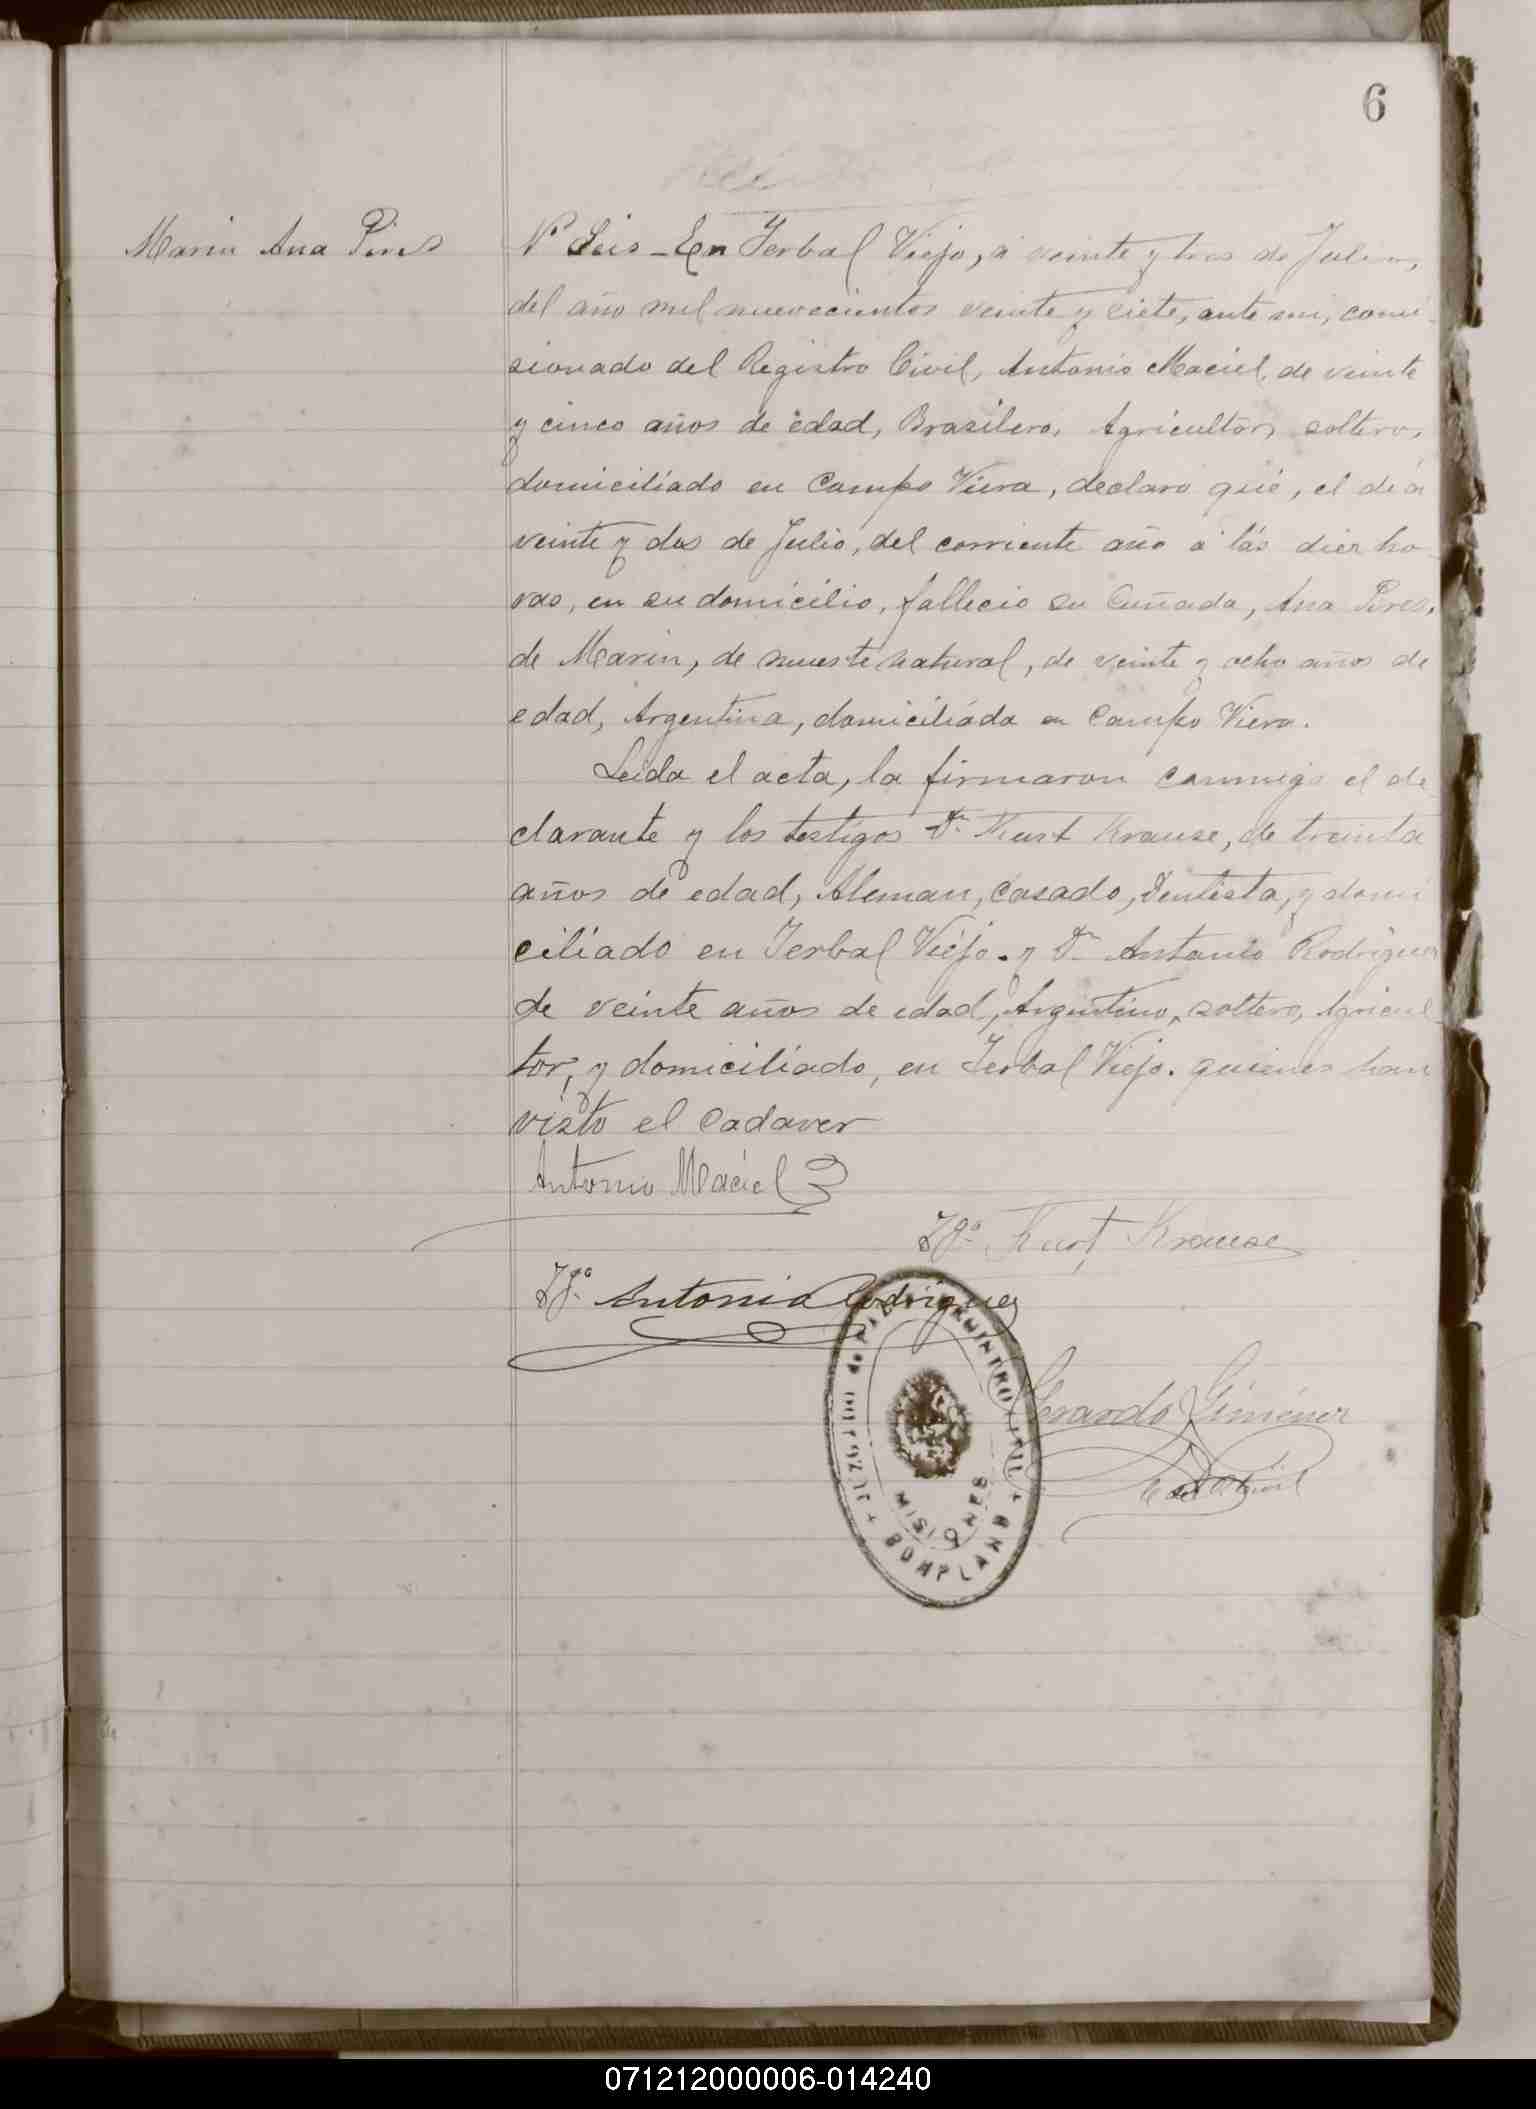 6
Marin Ana Pires
Nº Seis - En Yerbal Viejo, á veinte y tres de Julio,
del año mil nuevecientos veinte y ciete, ante mi, comi-
sionado del Registro Civil, Antonio Maciel, de veinte
y cinco años de edad, Brasilero, Agricultor, soltero,
domiciliado en Campo Viera, declaro que, el día
veinte y dos de Julio, del corriente año a las diez ho-
ras, en su domicilio, fallecio su Cuñada, Ana Pires,
de Marin, de muerte natural, de veinte y ocho años de
edad, Argentina, domiciliada en Campo Viera.
Leida el acta, la firmaron conmigo el de
clarante y los testigos Dn. Kurt Krause, de treinta
años de edad, Aleman, Casado, Dentista, y domi
ciliado en Yerbal Viejo. y Dn Antonio Rodriguez
de veinte años de edad, Argentino, soltero, Agricul-
tor, y domiciliado, en Yerbal Viejo. quienes han
visto el Cadaver
Antonio Maciel
Tgo. Kurt Krause
Tgo. Antonio Rodriguez
Gerardo Giménez
MISIONES
BOMPLAND
071212000006-014240